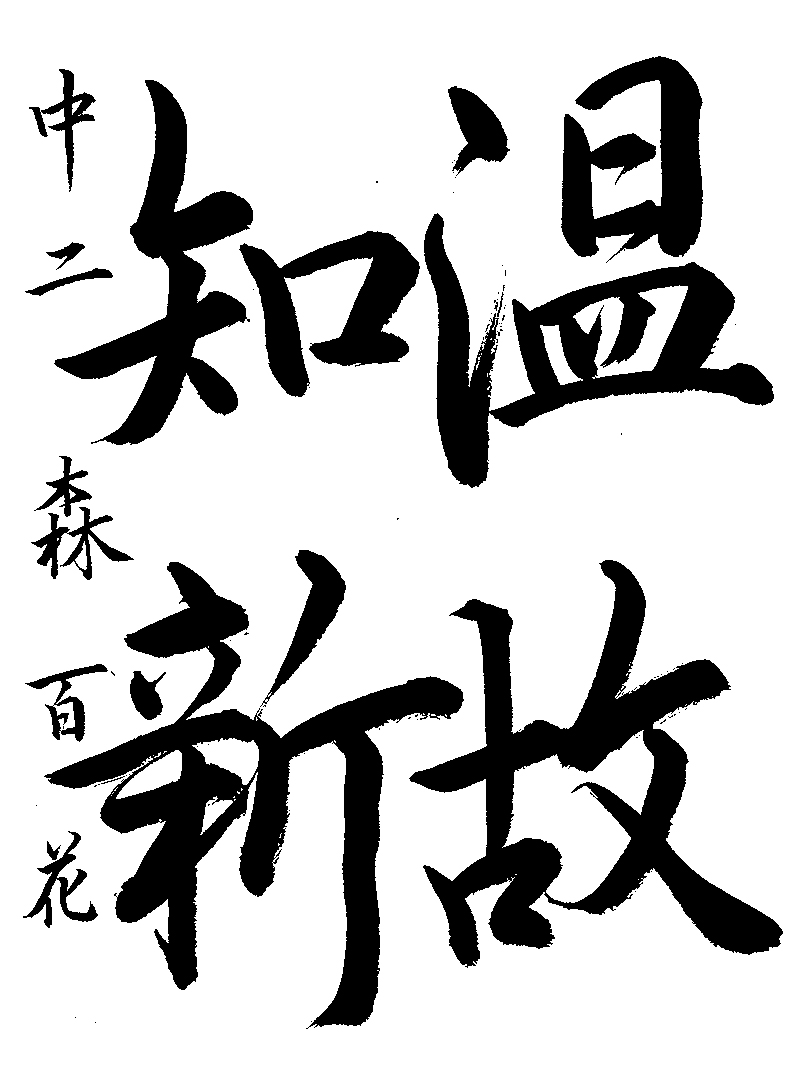 温故
知新
中二 森 百花